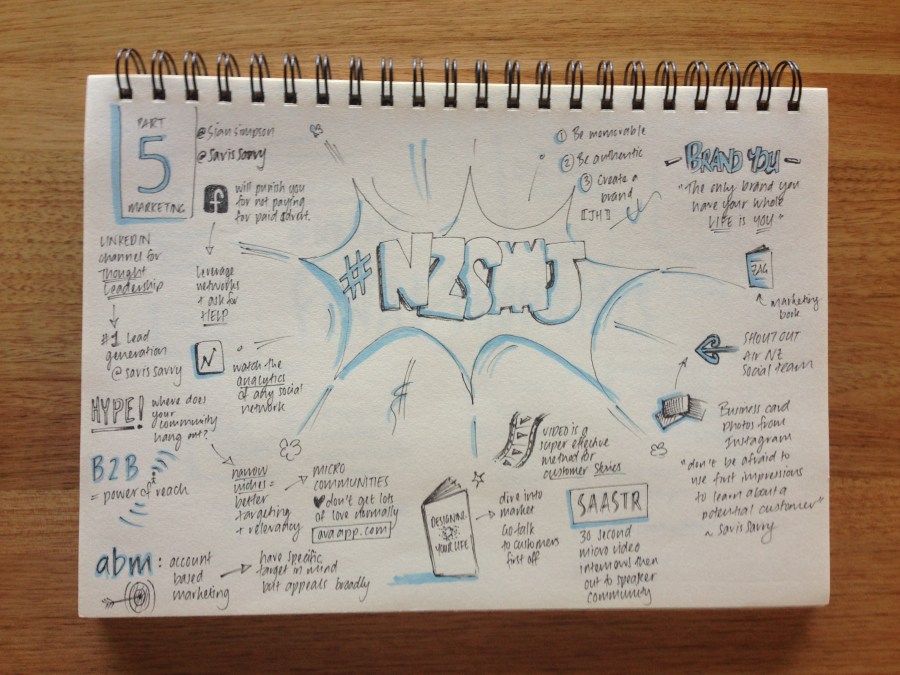 PART
5
MARKETING
@Siansimpson
@savissavvy
f
will punish you
for not paying
for paid advert.
LINKEDIN
channel for
Thought
Leadership
#1 Lead
generation
@savissavvy
Leverage
networks
+ ask for
HELP
N
watch the
analytics
of any social
network
HYPE!
where does
your
community
hang out?
B2B
= power of reach
narrow
niches =
better
targeting
+ relevancy
MICRO
COMMUNITIES
don't get lots
of love normally
avaapp.com
abm: account
based
marketing
have specific
target in mind
but appeals broadly
#NZSMJ
① Be memorable
② Be authentic
③ Create a
brand
[[JH]]
- BRAND YOU -
"The only brand you
have your whole
LIFE is YOU"
ZAG
marketing
book
SHOUT OUT
Air NZ
Social team
Business card
photos from
Instagram
"don't be afraid to
use first impressions
to learn about a
potential customer"
~ savissavvy
VIDEO is a
super effective
method for
customer stories
DESIGNING
YOUR LIFE
dive into
market
Go talk
to customers
first off
SAASTR
30 second
micro video
interviews then
out to speaker
community